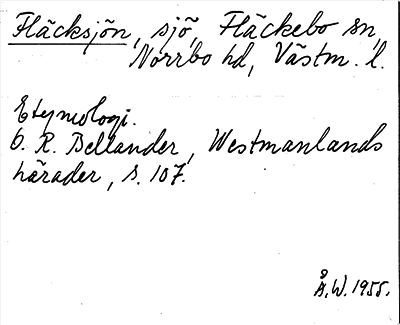 Fläcksjön, sjö, Fläckebo sn,
Norrbo hd, Västm. l.
Etymologi.
O. R. Bellander, Westmanlands
härader, s. 107.
Å.W. 1955.